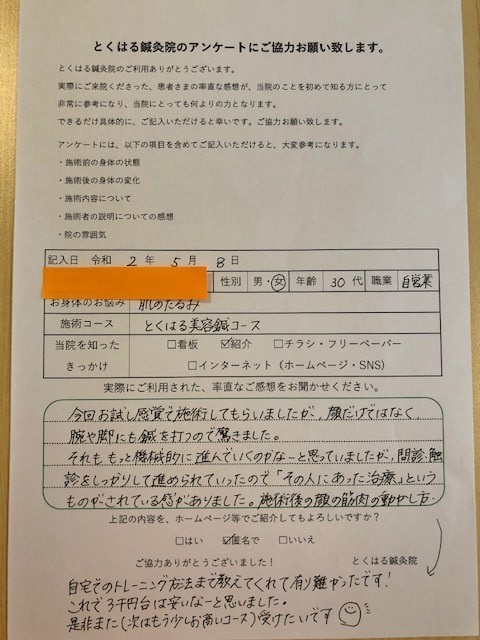 とくはる鍼灸院のアンケートにご協力お願い致します。
とくはる鍼灸院のご利用ありがとうございます。
実際にご来院くださった、患者さまの率直な感想が、当院のことを初めて知る方にとって
非常に参考になり、当院にとっても何よりの力となります。
できるだけ具体的に、ご記入いただけると幸いです。ご協力お願い致します。
アンケートには、以下の項目を含めてご記入いただけると、大変参考になります。
・施術前の身体の状態
・施術後の身体の変化
・施術内容について
・施術者の説明についての感想
・院の雰囲気
記入日 令和 2 年 5 月 8 日
性別 男・女 年齢 30 代 職業 自営業
お身体のお悩み 肌のたるみ
施術コース とくはる美容鍼コース
当院を知った □看板 ☑紹介 □チラシ・フリーペーパー
きっかけ □インターネット（ホームページ・SNS）
実際にご利用された、率直なご感想をお聞かせください。
今回お試し感覚で施術してもらいましたが、顔だけではなく
腕や脚にも鍼を打つので驚きました。
それももっと機械的に進んでいくのかなーと思っていましたが、問診・触
診をしっかりして進められていったので「その人にあった治療」という
ものがされている感がありました。施術後の顔の筋肉の動かし方
上記の内容を、ホームページ等でご紹介してもよろしいですか？
□はい ☑匿名で □いいえ
ご協力ありがとうございました！ とくはる鍼灸院
自宅でのトレーニング方法まで教えてくれて有り難かったです！
これで3千円台は安いなーと思いました。
是非また(次はもう少しお高いコース)受けたいです